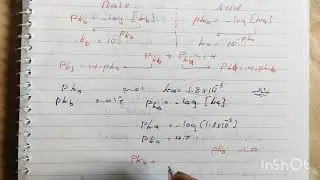 Base Acid
Pka = -log [ka]
kb = 10^-Pkb ka = 10^-Pka
Pkb + Pka = 14
Pkb = 14 - Pka Pka = 14 - Pkb
Pka ka = 1.8x10^-5
Pkb Pka = -log [ka]
Pka = -log (1.8x10^-5)
Pka = 4.7
Pkb +
InShOt